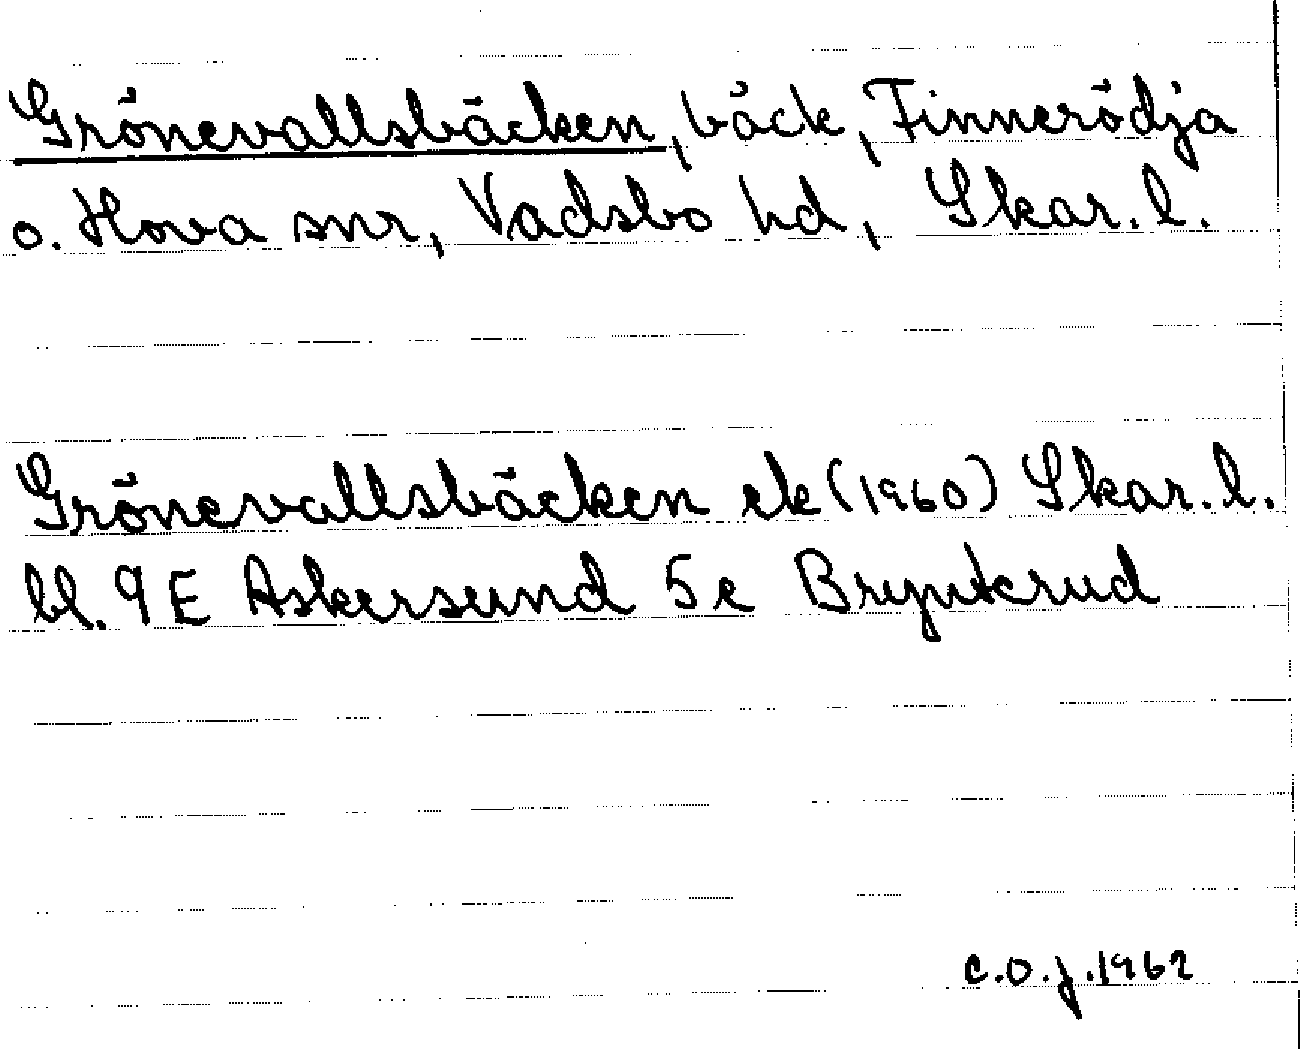 Grönevallsbäcken, bäck, Finnerödja
o. Hova snr, Vadsbo hd, Skar. l.
Grönevallsbäcken ek (1960) Skar. l.
bl. 9 E Askersund 5e Brynterud
C.O.J. 1962